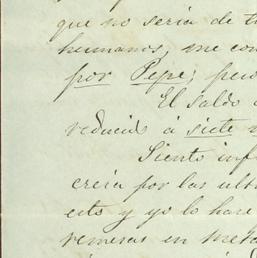 que no seria de t
hermanos, me con
por Pepe; pero
El saldo
reducido á siete
Siento inf
creia por las ulti
esto y yo lo hare
remesas en meta